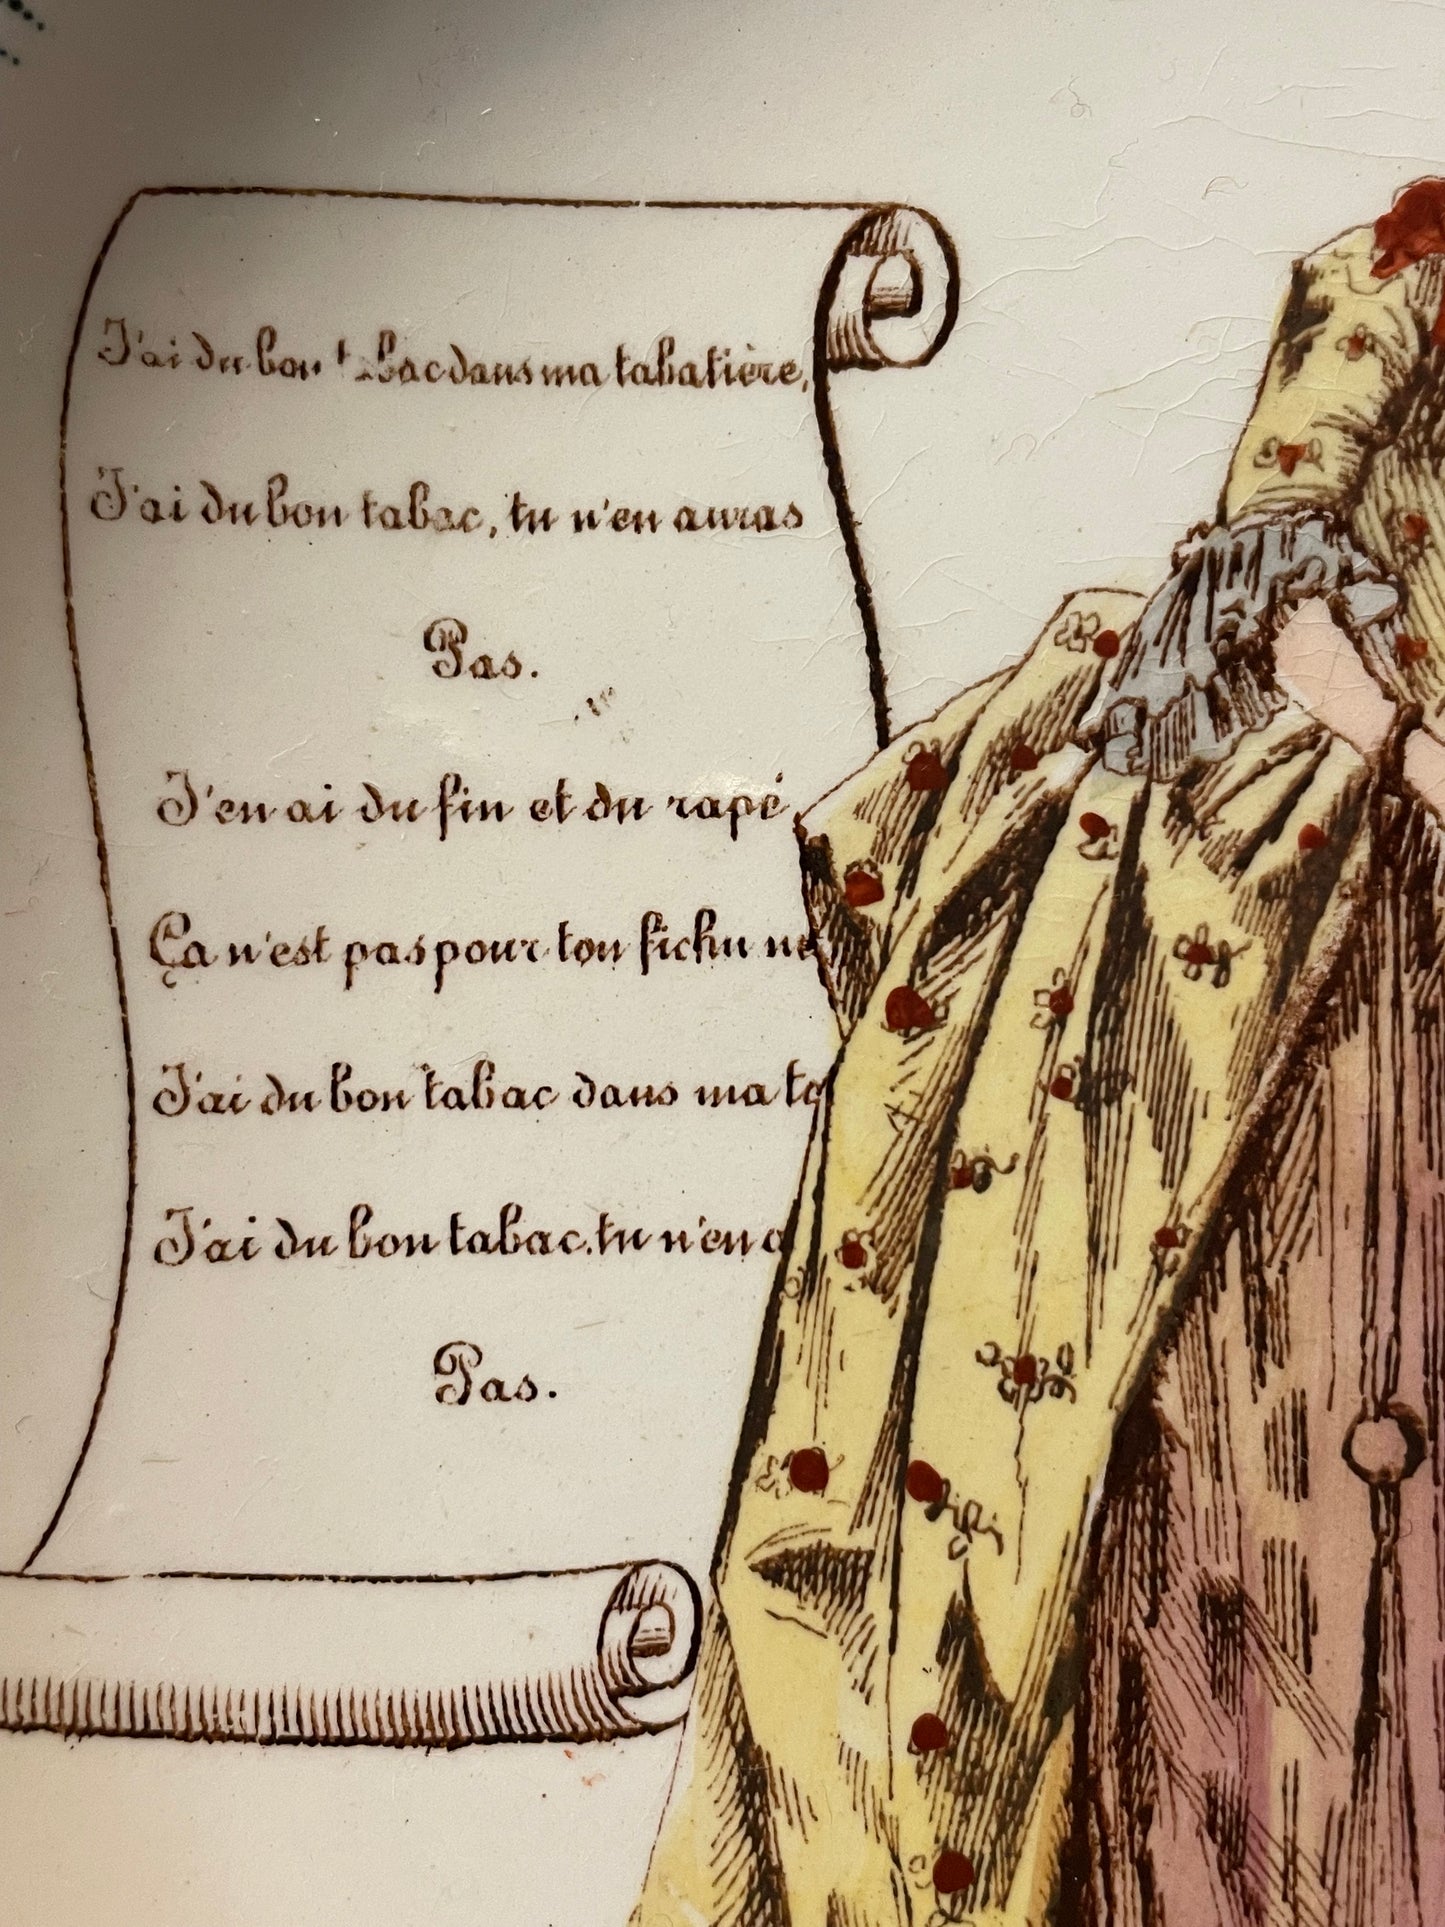 J'ai du bon tabac dans ma tabatière,
J'ai du bon tabac, tu n'en auras
Pas.
J'en ai du fin et du rapé
Ça n'est pas pour ton fichu ne
J'ai du bon tabac dans ma ta
J'ai du bon tabac. tu n'en a
Pas.